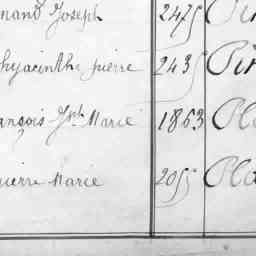 nand Joseph 2475 Pin
hyjacinthe pierre 2435 Pin
ançois Jph Marie 1853 Pla
uierre Marie 2055 Pla